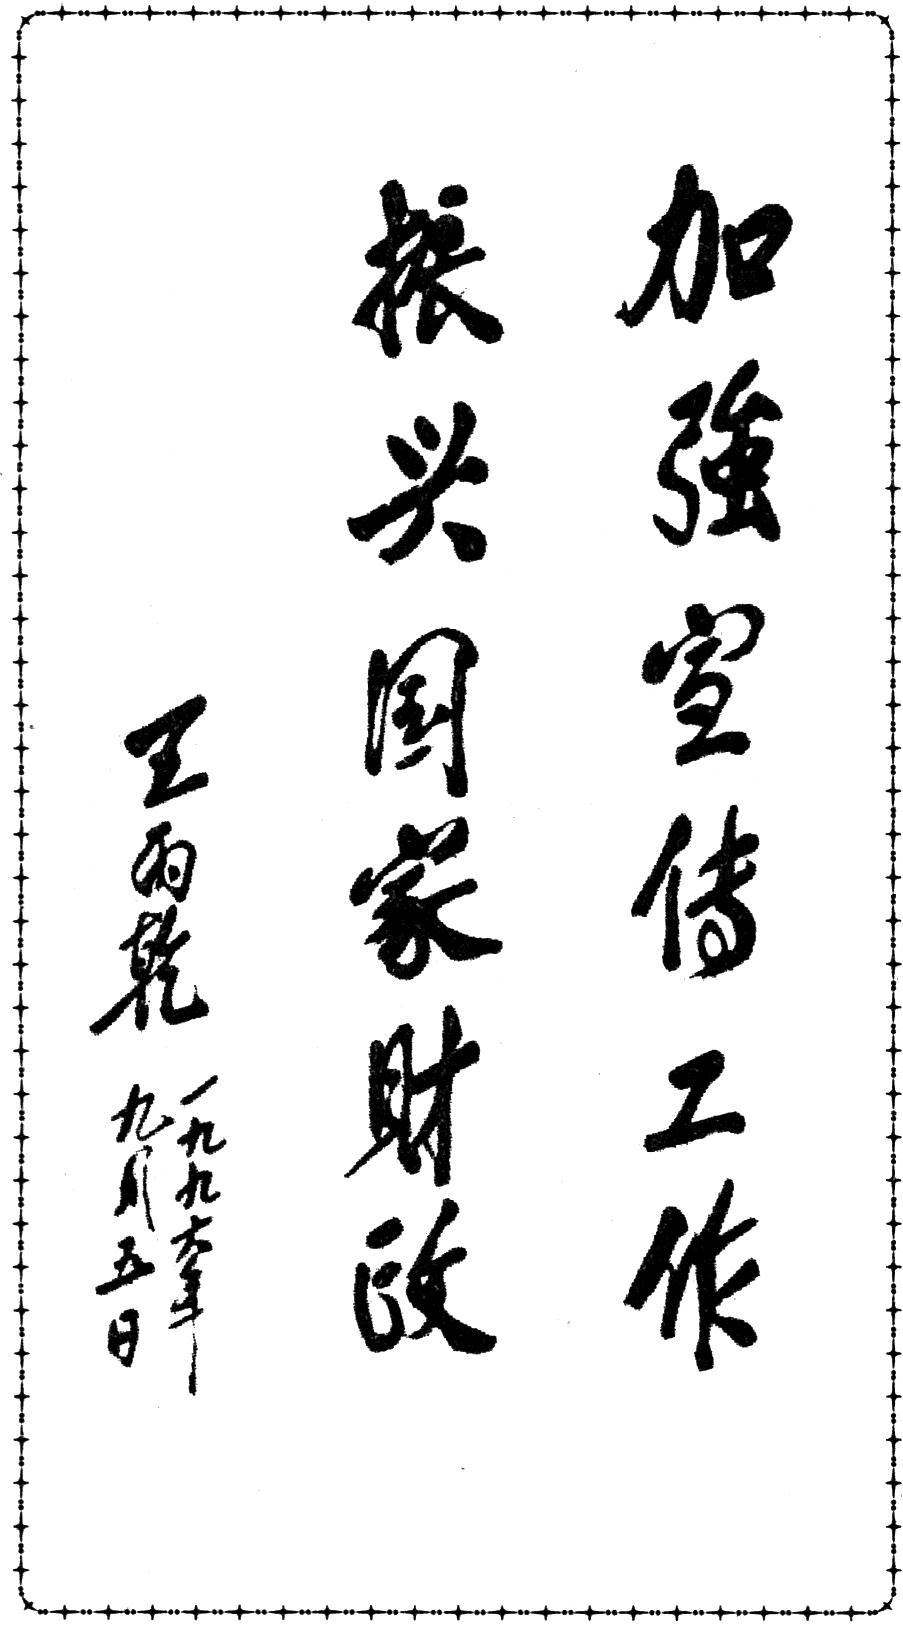 加强宣传工作
振兴国家财政
王丙乾
一九九六年
九月五日